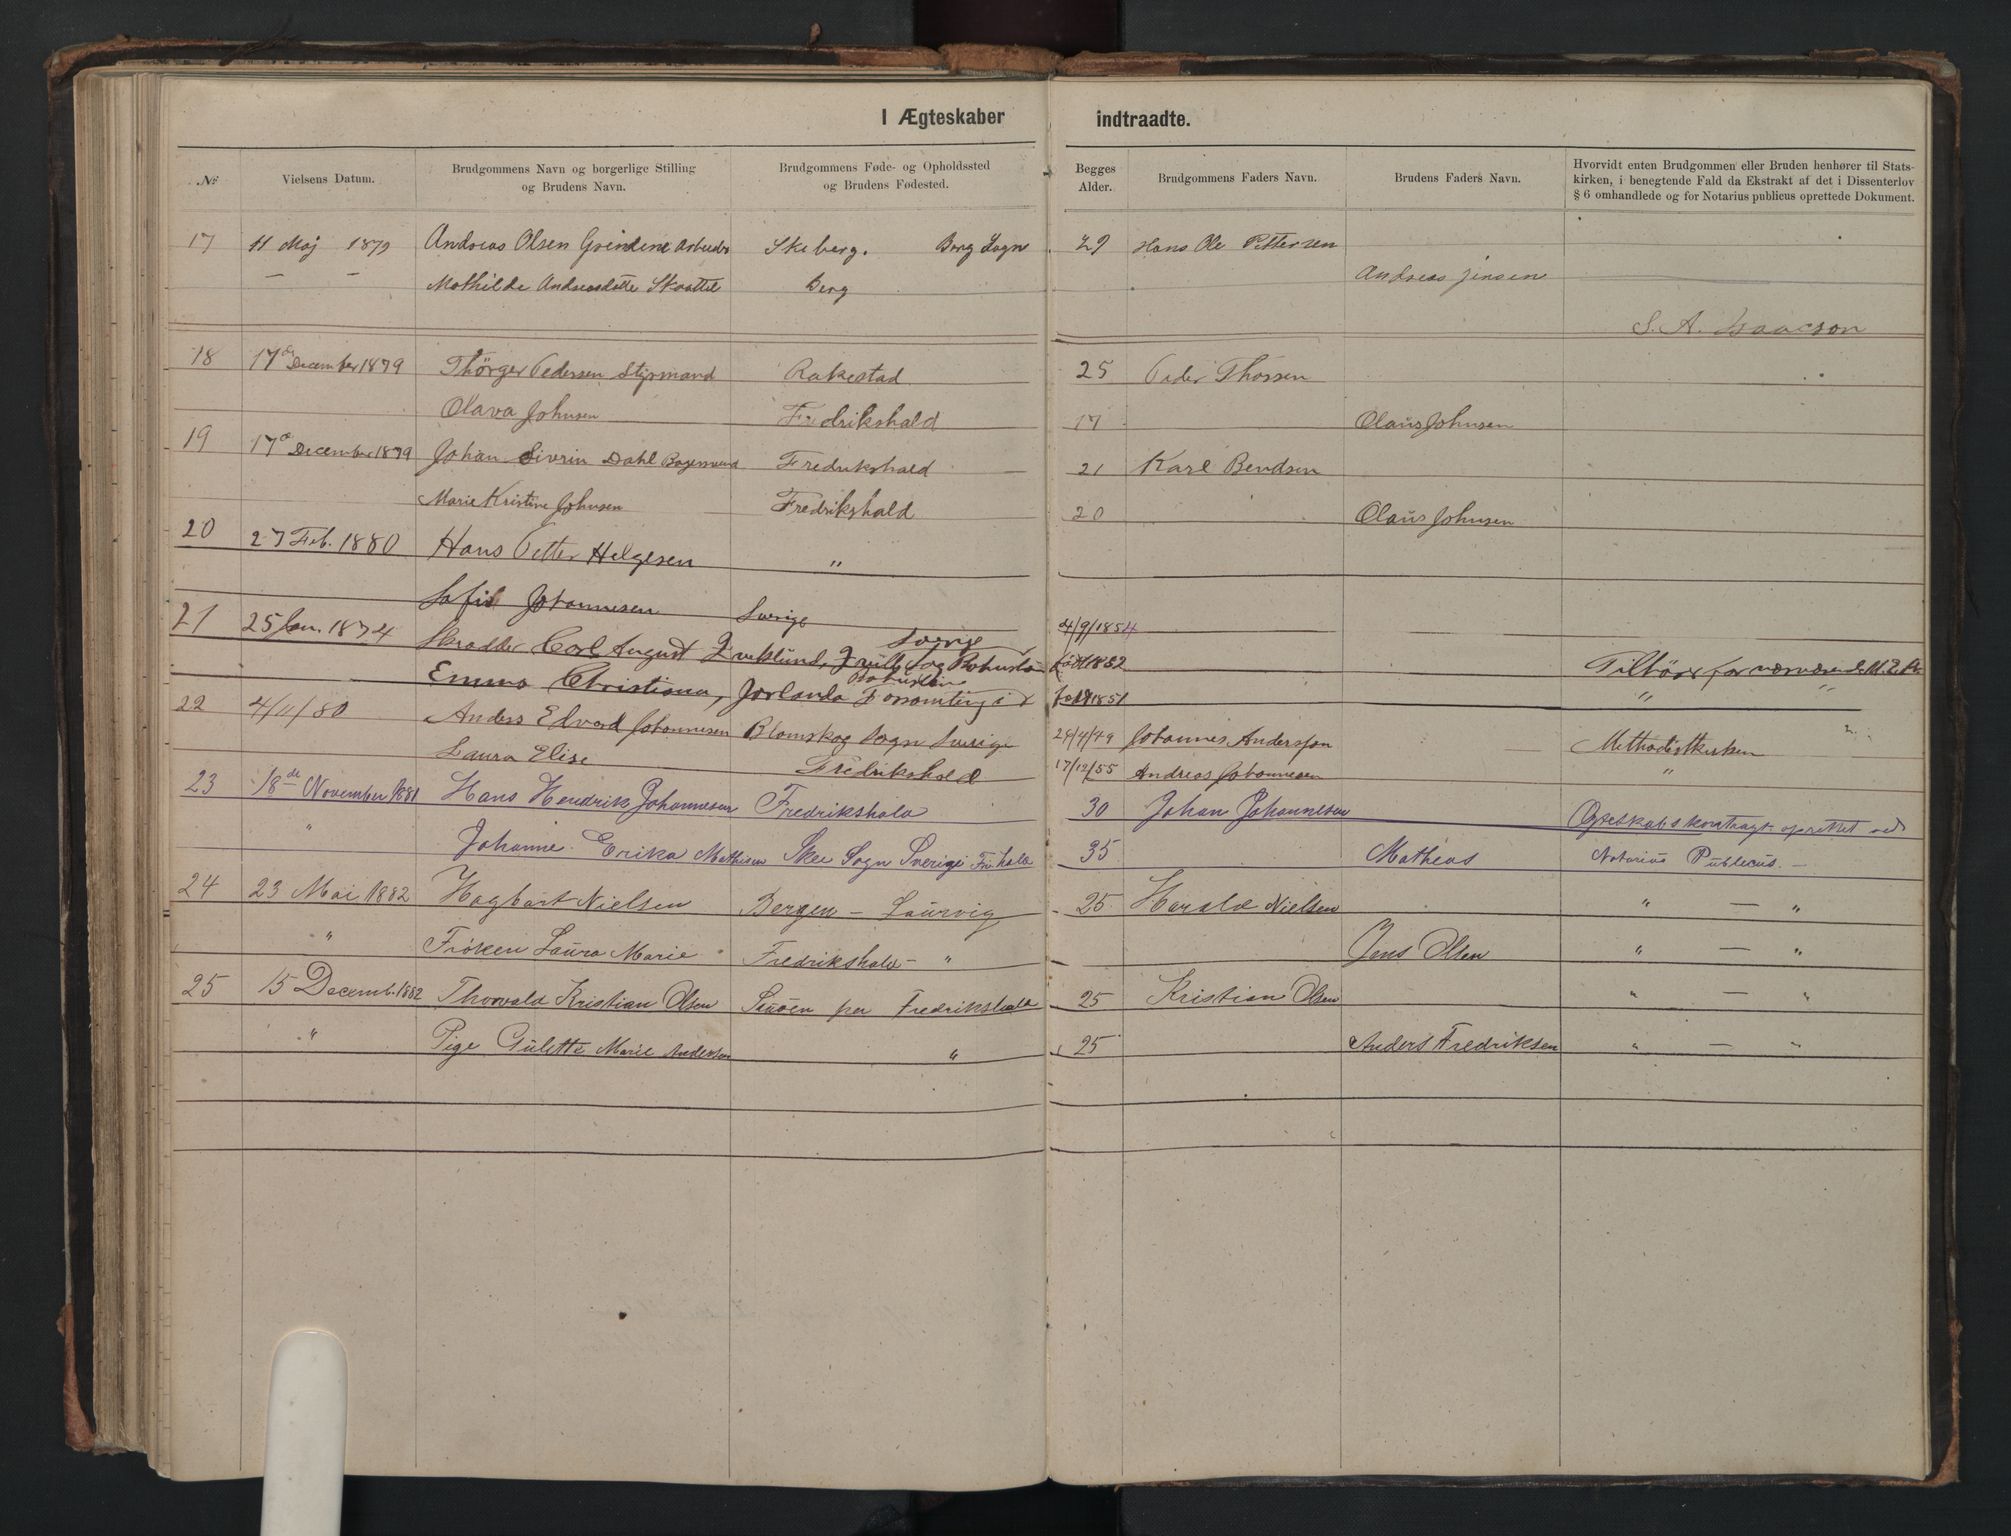 I Ægteskaber indtraadte.
No. Vielsens Datum. Brudgommens Navn og borgerlige Stilling og Brudens Navn. Brudgommens Føde- og Opholdssted og Brudens Fødested. Begges Alder. Brudgommens Faders Navn. Brudens Faders Navn. Hvorvidt enten Brudgommen eller Bruden henhører til Statskirken, i benegtende Fald da Ekstrakt af det i Dissenterlov § 6 omhandlede og for Notarius publicus oprettede Dokument.
17 11 Maj 1879 Andreas Olsen Grindene Arbeider Skeberg. Berg Sogn 29 Hans Ole Pettersen
— — Mathilde Andreasdatte Berg Andreas Jensen
S. A. Isaacson
18 17de December 1879 Thörger Pedersen Styrmand Rakestad 25 Peder Thorsen
Olava Johnsen Fredrikshald 17 Olaus Johnsen
19 17de December 1879 Johan Sivrin Dahl Fredrikshald 21 Karl Bendsen
Marie Kristine Johnsen Fredrikshald 20 Olaus Johnsen
20 27 Feb. 1880 Hans Petter Helgesen "
Sofie Johannesen Sverige 4/9/1854
21 25 Jan. 1874 Skrædder Carl August Qveklund, Qville Sogn Bohuslän Sverige född 1852 Tilhörer for nærværende M. E. K.
Emma Christiana, Jorlanda Bohuslän född 1851 " "
22 4/11/80 Anders Edvard Johannesen Blomskog Sogn Sverige 29/4/49 Johannes Andersson Methodistkirken "
Laura Elise Fredrikshald 17/12/55 Andreas Johannesen "
23 18de November 1881 Hans Hendrik Johannesen Fredrikshald 30 Johan Johannesen Egteskabskontragt oprettet ved
" Johanne Erika Mathisen Skee Sogn Sverige Frhald 35 Matheas Notarius Publicus. —
24 23 Mai 1882 Hagbart Nielsen Bergen — Laurvig 25 Harald Nielsen " — "
" Frøken Laura Marie Fredrikshald — " Jens Olsen " — "
25 15 Decemb. 1882 Thorvald Kristian Olsen Sauøen per Fredrikshald 25 Kristian Olsen " — "
" Pige Gulette Marie Andersen " 25 Anders Fredriksen " — "